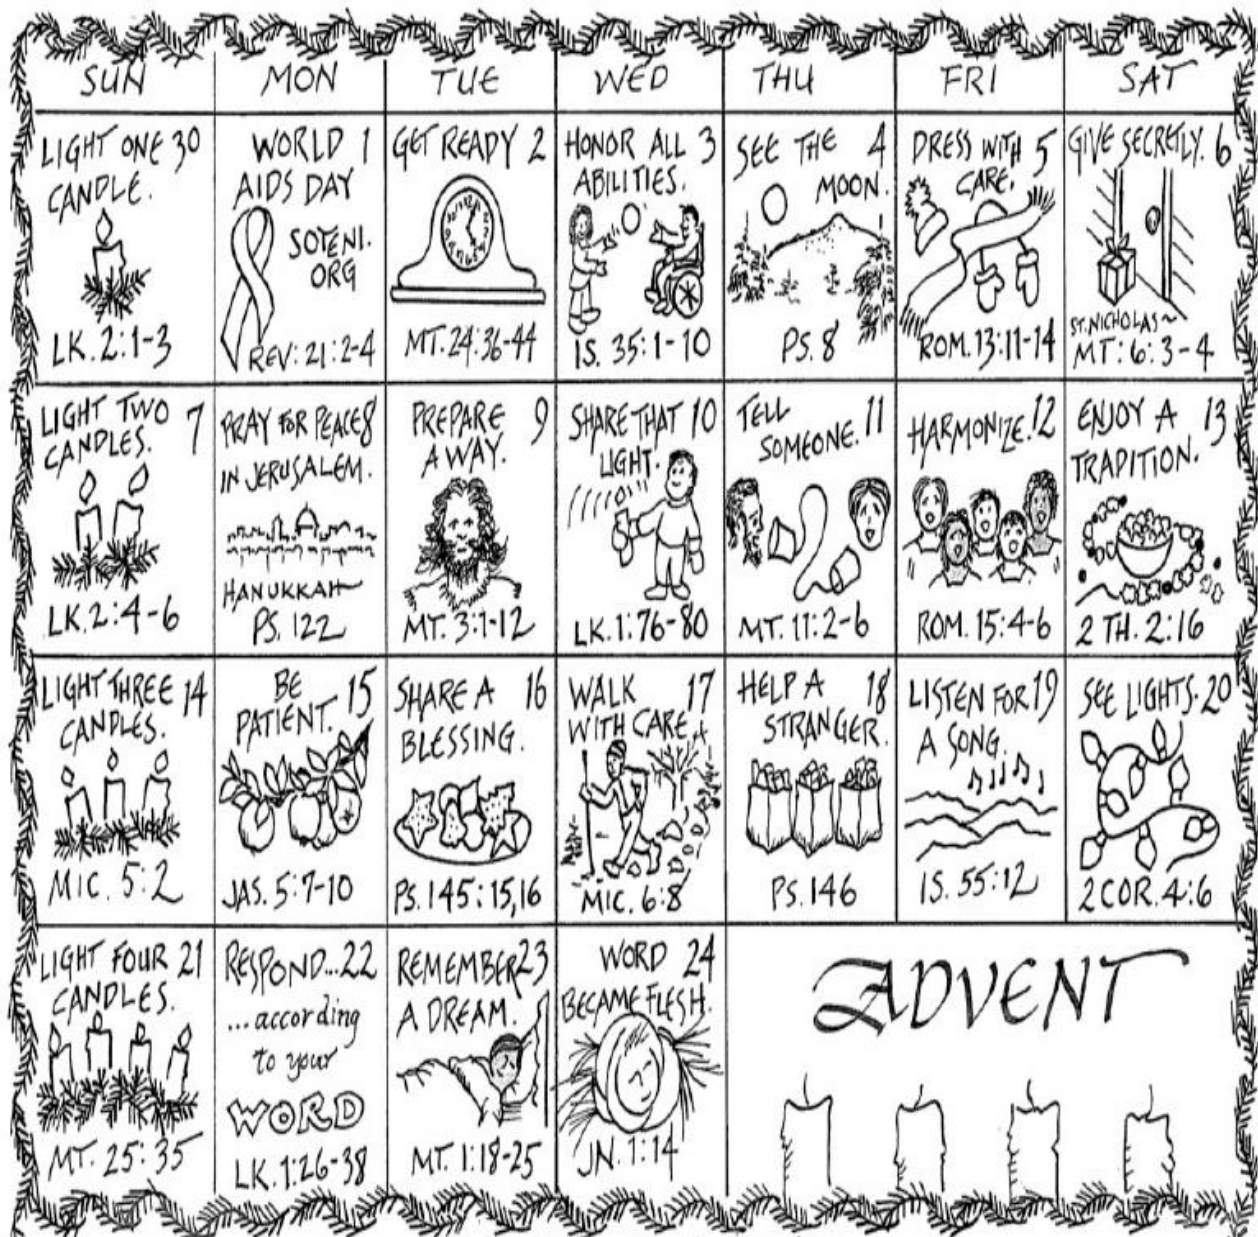 SUN MON TUE WED THU FRI SAT
LIGHT ONE 30
CANDLE.
LK. 2:1-3
WORLD 1
AIDS DAY
SOTENI.
ORG
REV: 21:2-4
GET READY 2
MT. 24:36-44
HONOR ALL 3
ABILITIES.
IS. 35:1-10
SEE THE 4
MOON.
PS. 8
DRESS WITH 5
CARE.
ROM. 13:11-14
GIVE SECRETLY. 6
ST. NICHOLAS~
MT: 6:3-4
LIGHT TWO 7
CANDLES.
LK. 2:4-6
PRAY FOR PEACE 8
IN JERUSALEM.
HANUKKAH
PS. 122
PREPARE 9
A WAY.
MT. 3:1-12
SHARE THAT 10
LIGHT.
LK. 1:76-80
TELL 11
SOMEONE.
MT. 11:2-6
HARMONIZE. 12
ROM. 15:4-6
ENJOY A 13
TRADITION.
2 TH. 2:16
LIGHT THREE 14
CANDLES.
MIC. 5:2
BE 15
PATIENT.
JAS. 5:7-10
SHARE A 16
BLESSING.
PS. 145:15,16
WALK 17
WITH CARE.
MIC. 6:8
HELP A 18
STRANGER.
PS. 146
LISTEN FOR 19
A SONG.
IS. 55:12
SEE LIGHTS. 20
2 COR. 4:6
LIGHT FOUR 21
CANDLES.
MT. 25:35
RESPOND... 22
...according
to your
WORD
LK. 1:26-38
REMEMBER 23
A DREAM.
MT. 1:18-25
WORD 24
BECAME FLESH.
JN. 1:14
ADVENT